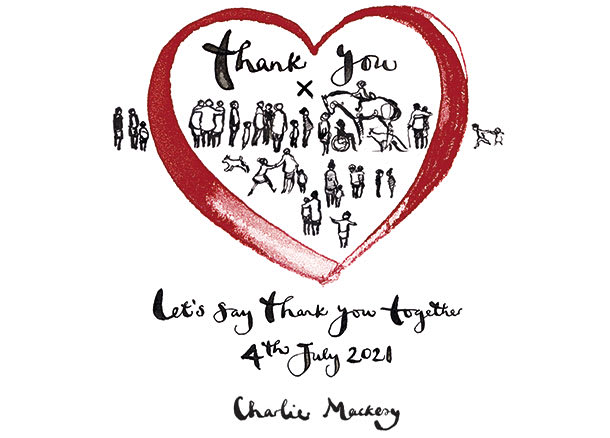 Thank You
x
Let's say thank you together
4th July 2021
Charlie Mackesy